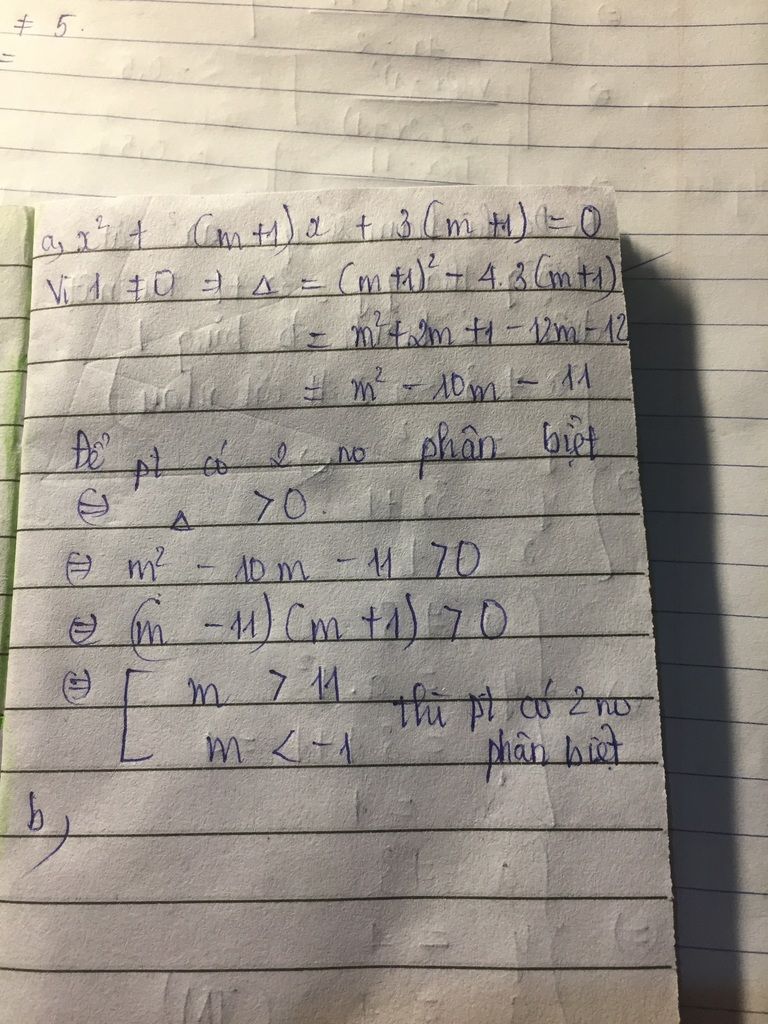 ≠ 5.
=
a, x² + (m+1)x + 3(m+1) = 0
Vì 1 ≠ 0 ⇒ Δ = (m+1)² - 4.3(m+1)
= m² + 2m + 1 - 12m - 12
= m² - 10m - 11
Để pt có 2 no phân biệt
⇔ Δ > 0.
⇔ m² - 10m - 11 > 0
⇔ (m - 11)(m + 1) > 0
⇔ [ m > 11 thì pt có 2 no
m < -1 phân biệt
b,